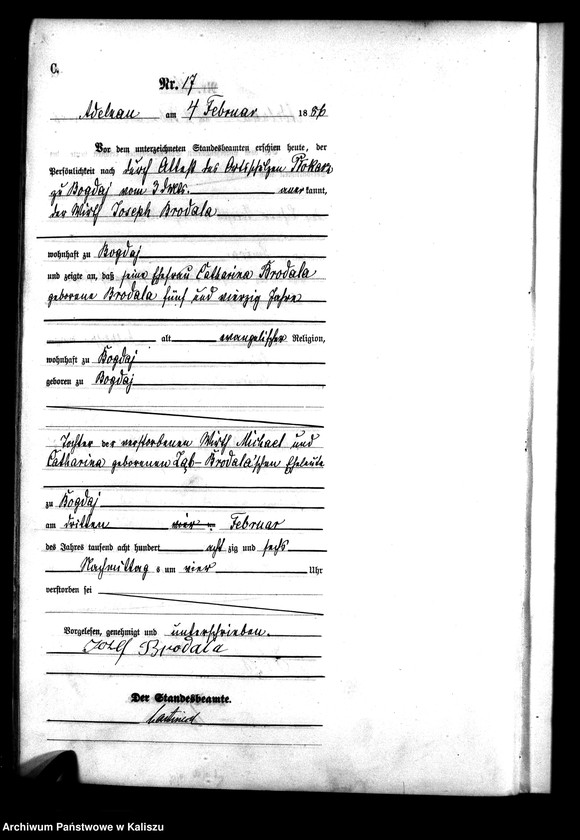 C.
Nr. 17
Adelnau am 4 Februar 1886
Vor dem unterzeichneten Standesbeamten erschien heute, der
Persönlichkeit nach durch Attest des Ortsschulzen
zu Bogdaj vom 3 d. Mts. anerkannt,
der Wirth Joseph Brodala
wohnhaft zu Bogdaj
und zeigte an, daß seine Ehefrau Catharina Brodala
geborene Brodala fünf und vierzig Jahre
alt evangelischer Religion,
wohnhaft zu Bogdaj
geboren zu Bogdaj
Tochter der verstorbenen Wirth Michael und
Catharina geborenen Brodala'schen Eheleute
zu Bogdaj
am dritten Februar
des Jahres tausend acht hundert acht zig und sechs
Nachmittags um vier Uhr
verstorben sei
Vorgelesen, genehmigt und unterschrieben.
Josef Brodala
Der Standesbeamte.
Archiwum Państwowe w Kaliszu